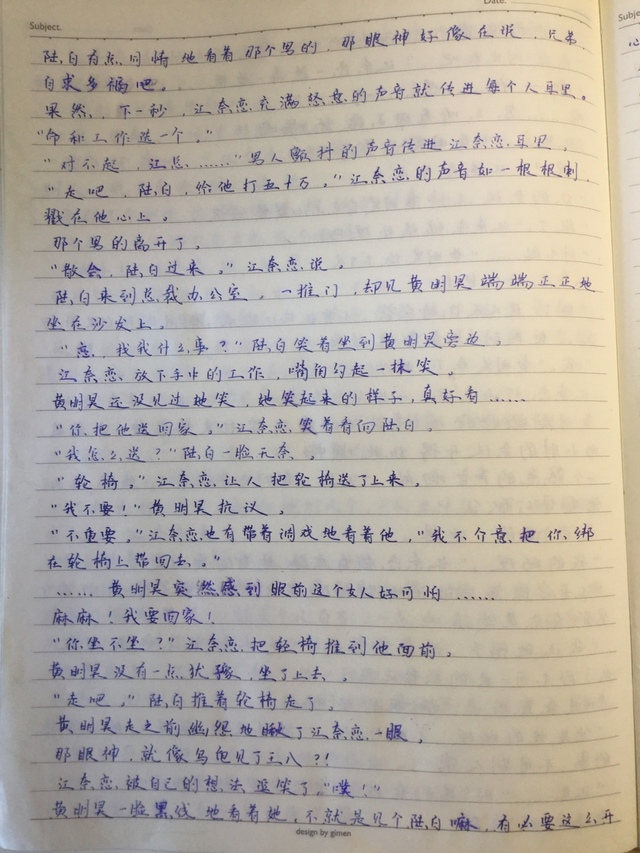 Subject.
Date:
陆白有点同情地看着那个男的，那眼神好像在说，兄弟，
自求多福吧。
果然，下一秒，江奈恋充满怒意的声音就传进每个人耳里。
"命和工作选一个。"
"对不起，江总……"男人颤抖的声音传进江奈恋耳里。
"走吧，陆白，给他打五十万。"江奈恋的声音如一根根刺，
戳在他心上。
那个男的离开了。
"散会，陆白过来。"江奈恋说。
陆白来到总裁办公室，一推门，却见黄明昊端端正正地
坐在沙发上。
"恋，找我什么事？"陆白笑着坐到黄明昊旁边。
江奈恋放下手中的工作，嘴角勾起一抹笑。
黄明昊还没见过她笑，她笑起来的样子，真好看……
"你把他送回家。"江奈恋笑着看向陆白。
"我怎么送？"陆白一脸无奈。
"轮椅。"江奈恋让人把轮椅送了上来。
"我不要！"黄明昊抗议。
"不重要。"江奈恋也有带着调戏地看着他，"我不介意把你绑
在轮椅上带回去。"
……黄明昊突然感到眼前这个女人好可怕……
麻麻！我要回家！
"你坐不坐？"江奈恋把轮椅推到他面前。
黄明昊没有一点犹豫，坐了上去。
"走吧。"陆白推着轮椅走了。
黄明昊走之前幽怨地瞅了江奈恋一眼。
那眼神，就像乌龟见了王八？！
江奈恋被自己的想法逗笑了，"噗！"
黄明昊一脸黑线地看着她，不就是见个陆白嘛，有必要这么开
design by gimen
Subje
心